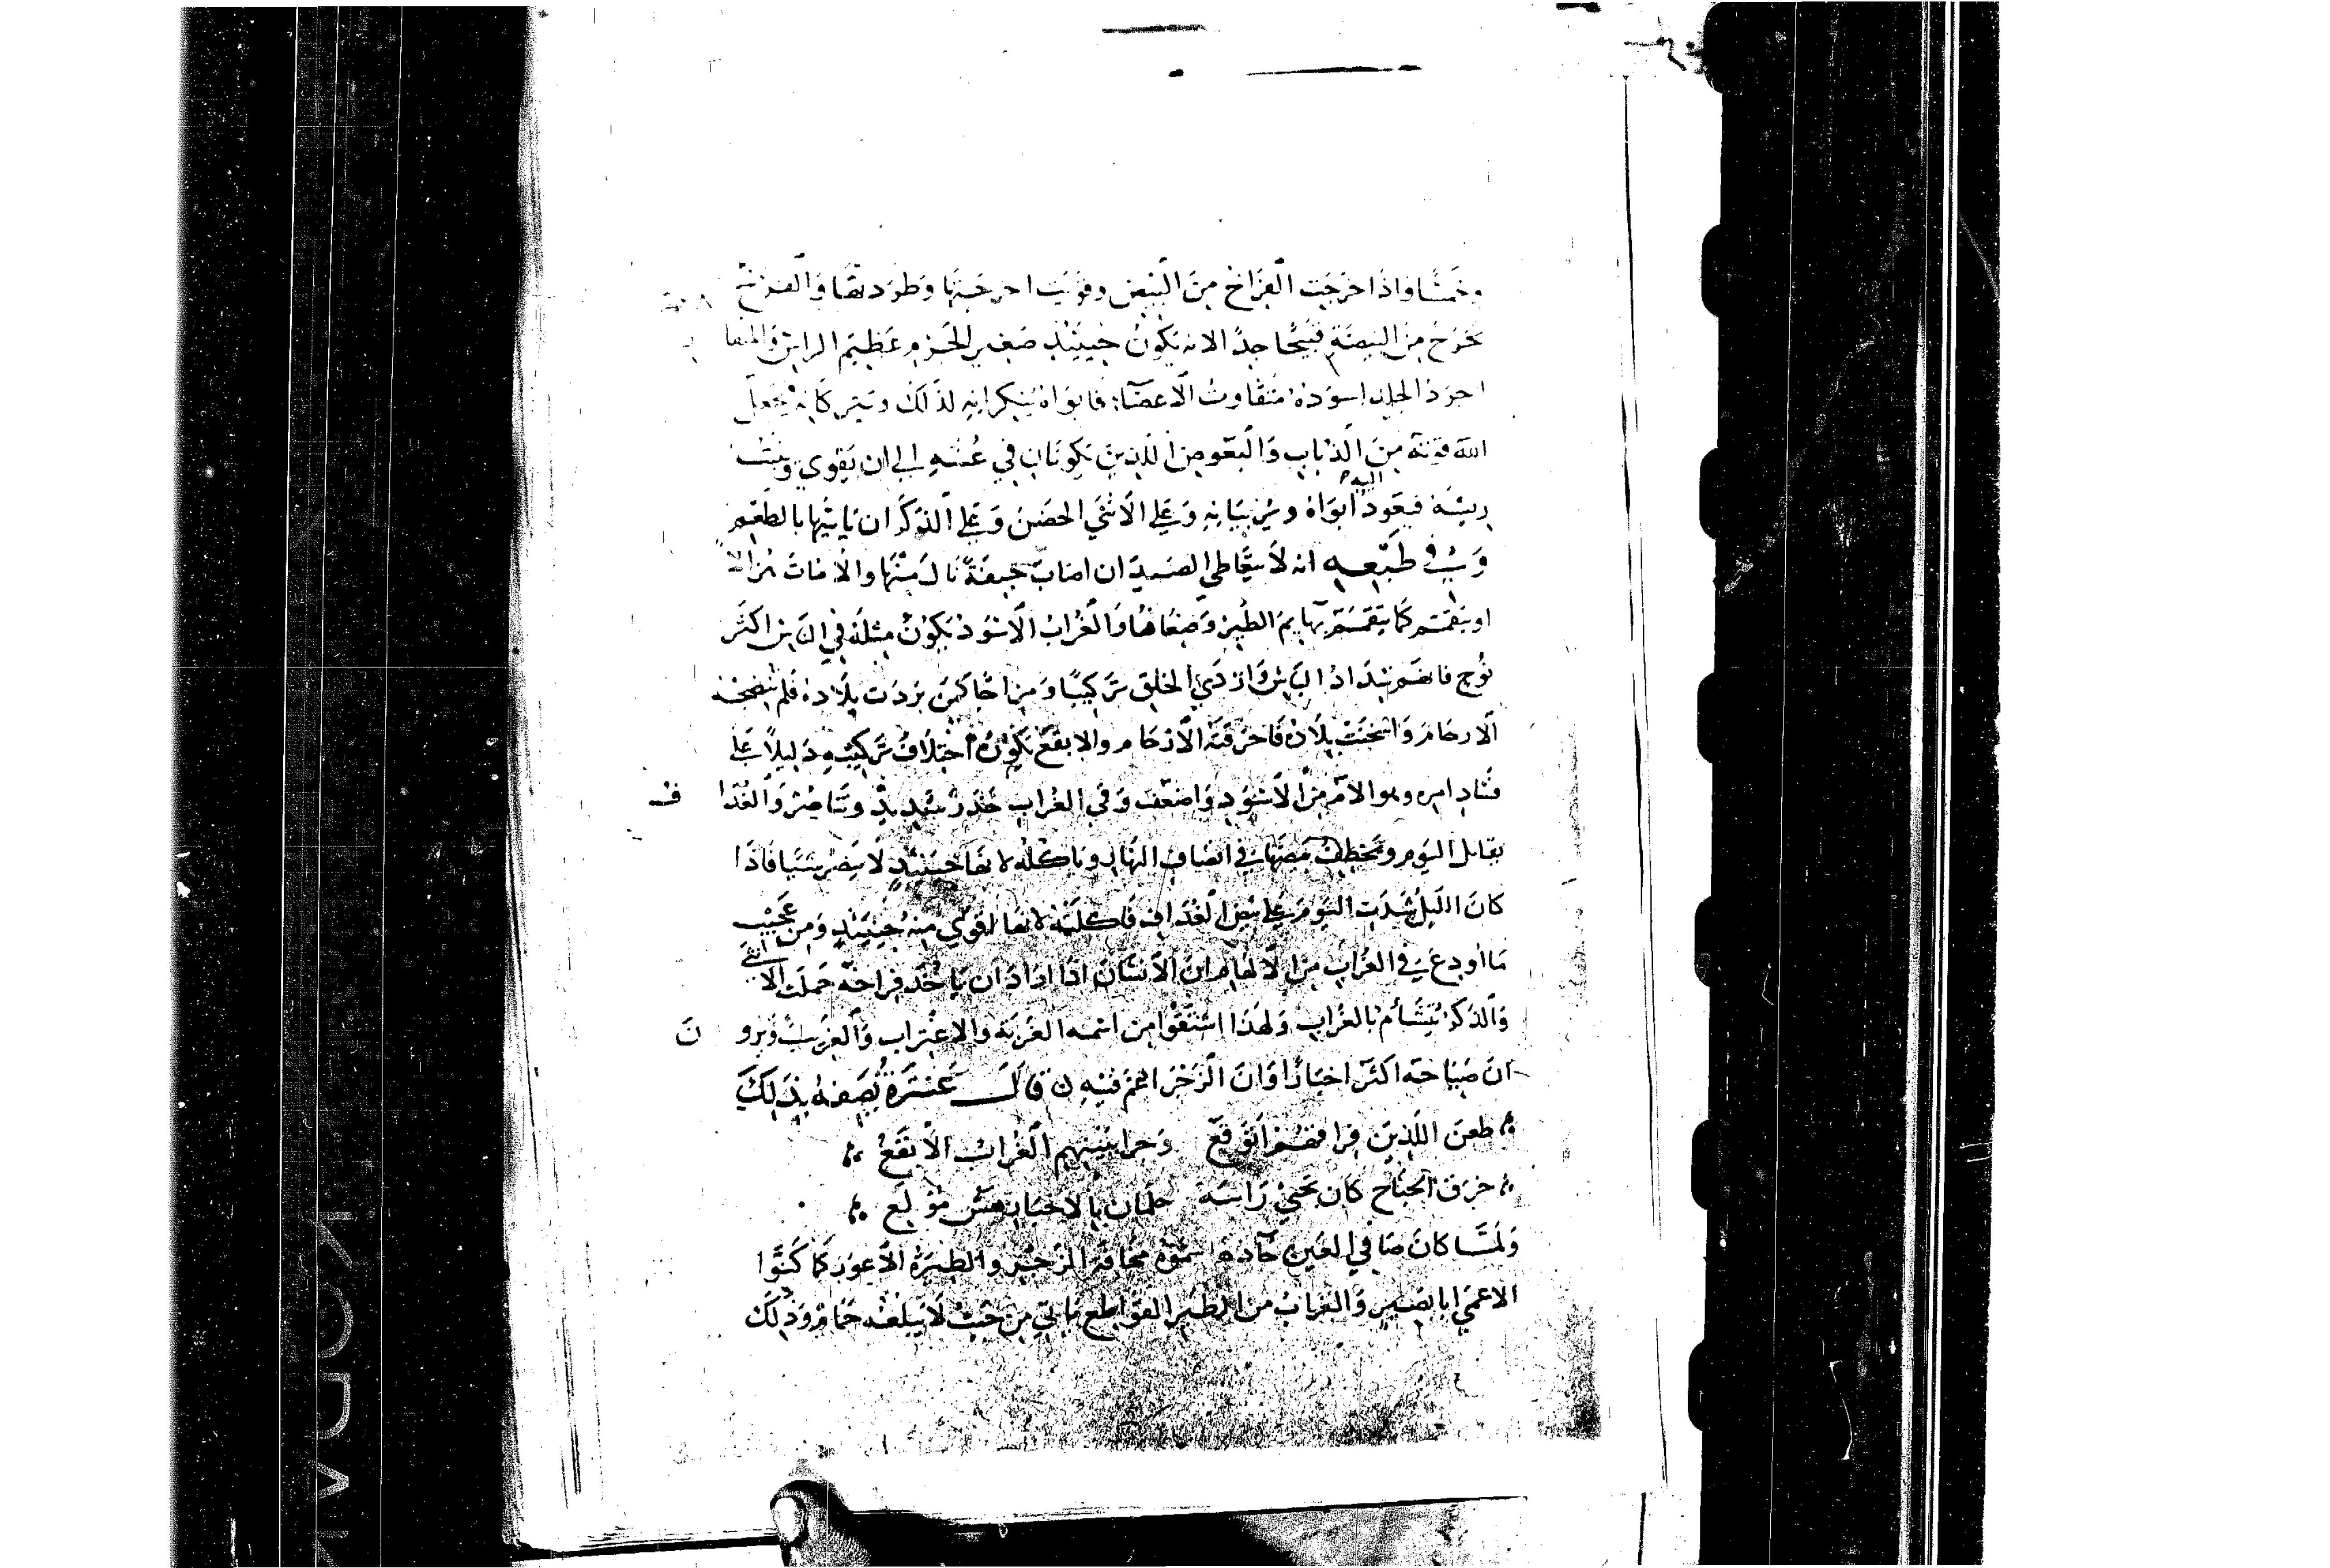 وخمسا واذا خرجت الفراخ من البيض وقويت اخرجتها وطردتها والفرخ
يخرج من البيضة قبيحا جدا لانه يكون حينئذ صغير الجرم عظيم الراس والمنقار
اجرد الجلد اسوده متفاوت الاعضاء فابواه ينكرانه لذلك ويتركانه فيجعل
الله قوته من الذباب والبعوض الذين يكونان في عشه الى ان يقوى وينبت
ريشه فيعود اليه ابواه ويربيانه وعلى الانثى الحضن وعلى الذكر ان ياتيها بالطعم
وفي طبعه انه لا يتعاطى الصيد ان اصاب جيفة نال منها والا مات هزالا
او يتقمم كما يتقمم بهايم الطير وضعافها والغراب الاسود يكون مثله في الناس اكثر
نوح فانهم شداد الناس واردى الخلق تركيبا ومزاجا كمن بردت بلاده فلم تنضجه
الارحام واسخنت بلاده فاحرقته الارحام والابقع يكون اختلاف تركيبه دليلا على
فساد امره وهو الام من الاسود واضعف وفي الغراب حذر شديد وتناصر والغداف
يقاتل البوم ويخطف بيضها في انصاف النهار وياكله لانها حينئذ لا تبصر شيا فاذا
كان الليل شدت البوم على بيض الغداف فاكلته لانها اقوى منه حينئذ ومن عجيب
ما اودع في الغراب من الالهام ان الانسان اذا اراد ان ياخذ فراخه حملت الانثى
والذكر يتشأم بالغراب ولهذا اشتقوا من اسمه الغربة والاغتراب والغريب ويرون
ان صياحه اكثر اخبارا وان الزجر اعم فيه ن قال عنترة يصفه بذلك
ظعن الذين فراقهم اتوقع وجرا ببينهم الغراب الابقع
خرق الجناح كان لحيي راسه جلمان بالاخبار هش مولع
ولما كان صافي العين حاده سموه مخافة الزجر والطيرة الاعور كما كنوا
الاعمى ابا بصير والغراب من الطير القواطع ياتي من حيث لا يبلغه حمام وذلك